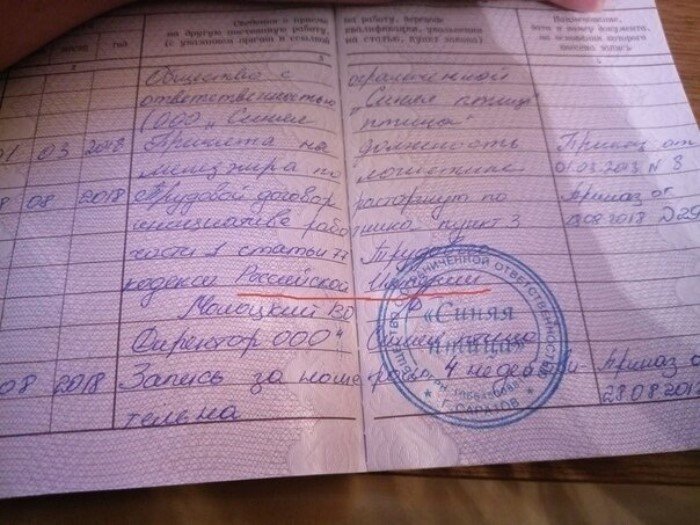 Сведения о приеме на работу, переводе
на другую постоянную работу, квалификации, увольнении
(с указанием причин и ссылкой на статью, пункт закона)
Наименование,
дата и номер документа,
на основании которого
внесена запись
месяц год
2 3 4
Общество с ограниченной
ответственностью „Синяя птица"
(ООО „Синяя птица"
01 03 2018 Принята на должность Приказ от
менеджера по логистике 01.03.2018 N 8
8 08 2018 Трудовой договор расторгнут по Приказ от
инициативе работника пункт 3 08.2018
части 1 статьи 77 Трудового
кодекса Российской Империи
Директор ООО „Синяя птица
08 2018 Запись за номером 4 недействи Приказ
тельна 28.08.201
ОБЩЕСТВО С ОГРАНИЧЕННОЙ ОТВЕТСТВЕННОСТЬЮ
«Синяя
птица»
Г. САРАТОВ